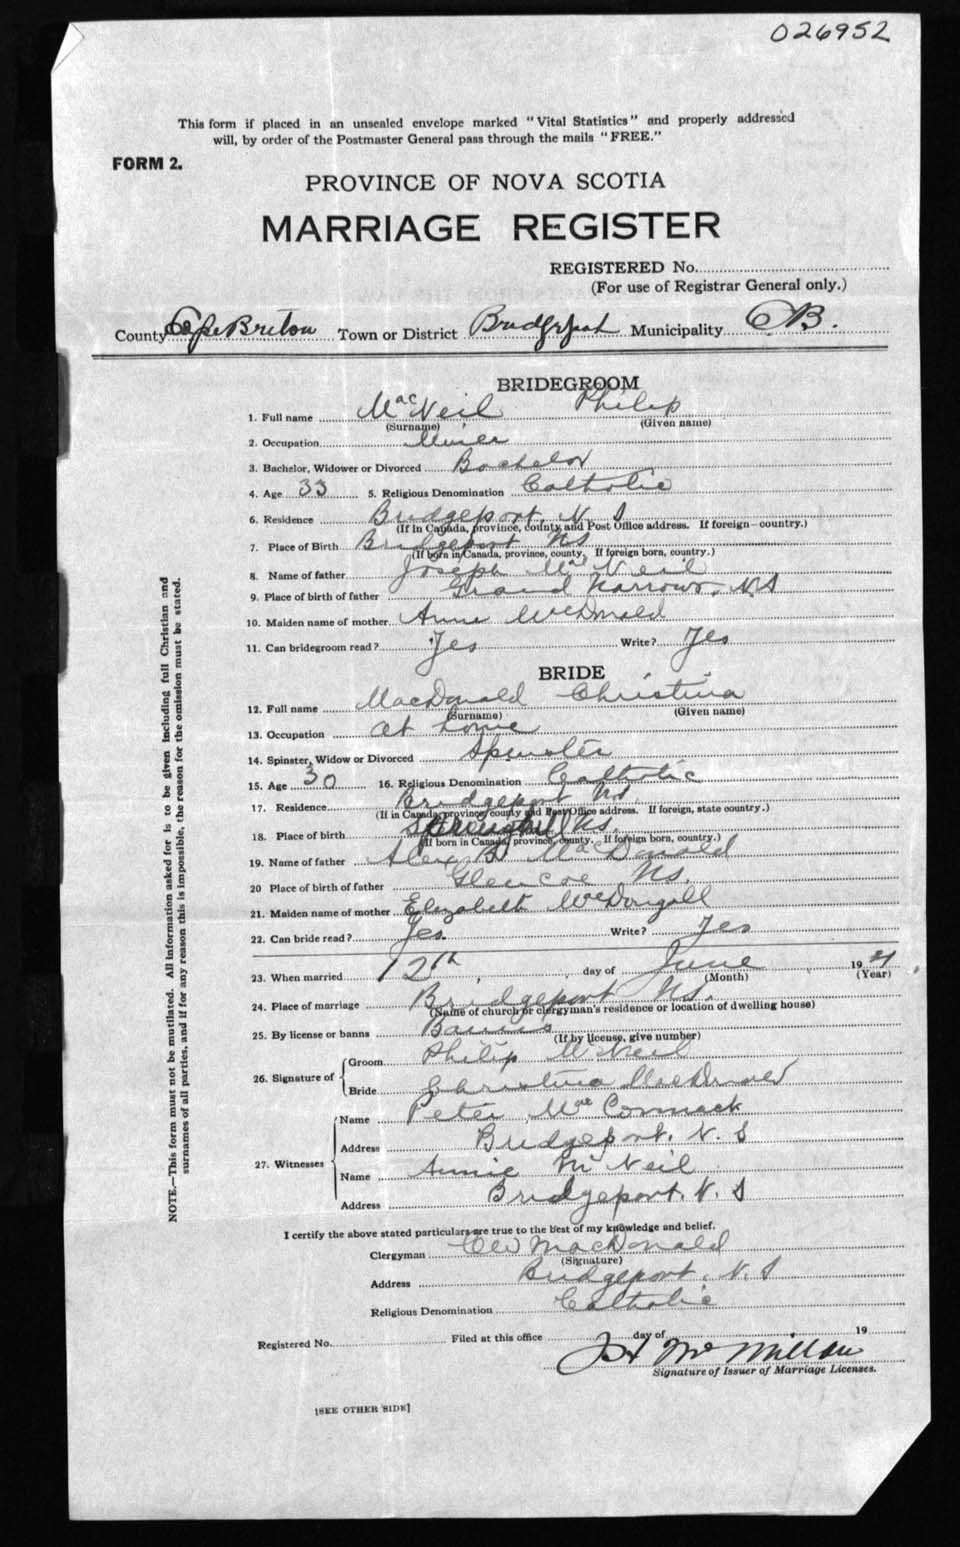 026952
This form if placed in an unsealed envelope marked "Vital Statistics" and properly addressed
will, by order of the Postmaster General pass through the mails "FREE."
FORM 2.
PROVINCE OF NOVA SCOTIA
MARRIAGE REGISTER
REGISTERED No.
(For use of Registrar General only.)
County Cape Breton Town or District Bridgeport Municipality CB.
BRIDEGROOM
1. Full name MacNeil Philip
(Surname) (Given name)
2. Occupation Miner
3. Bachelor, Widower or Divorced Bachelor
4. Age 33 5. Religious Denomination Catholic
6. Residence Bridgeport, N. S
(If in Canada, province, county and Post Office address. If foreign—country.)
7. Place of Birth Bridgeport NS
(If born in Canada, province, county. If foreign born, country.)
8. Name of father Joseph MacNeil
9. Place of birth of father Grand Narrows, N.S
10. Maiden name of mother Annie McDonald
11. Can bridegroom read? Yes Write? Yes
BRIDE
12. Full name MacDonald Christina
(Surname) (Given name)
13. Occupation at home
14. Spinster, Widow or Divorced Spinster
15. Age 30 16. Religious Denomination Catholic
17. Residence Bridgeport NS.
(If in Canada, province, county and Post Office address. If foreign, state country.)
18. Place of birth NS.
(If born in Canada, province, county. If foreign born, country.)
19. Name of father Alex B MacDonald
20 Place of birth of father Glencoe NS.
21. Maiden name of mother Elizabeth McDougall
22. Can bride read? Yes. Write? Yes
23. When married 12th day of June 19
(Month) (Year)
24. Place of marriage Bridgeport NS.
(Name of church or clergyman's residence or location of dwelling house)
25. By license or banns Banns
(If by license, give number)
26. Signature of
Groom Philip McNeil
Bride Christina MacDonald
27. Witnesses
Name Peter MacCormack
Address Bridgeport, N. S
Name Annie McNeil
Address Bridgeport, N. S
I certify the above stated particulars are true to the best of my knowledge and belief.
Clergyman MacDonald
(Signature)
Address Bridgeport, N. S
Religious Denomination Catholic
Registered No. Filed at this office day of 19
McMillan
Signature of Issuer of Marriage Licenses.
[SEE OTHER SIDE]
NOTE.—This form must not be mutilated. All information asked for is to be given including full Christian and
surnames of all parties, and if for any reason this is impossible, the reason for the omission must be stated.